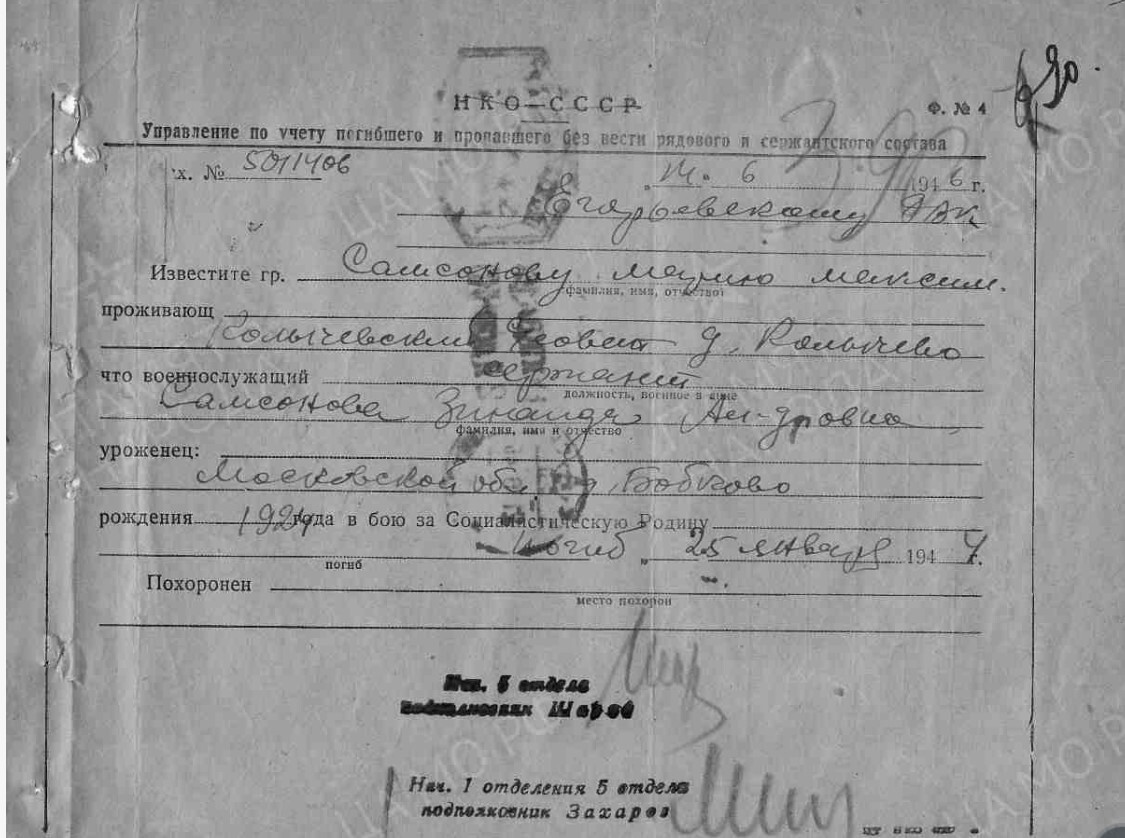 НКО СССР
Ф. № 4
Управление по учету погибшего и пропавшего без вести рядового и сержантского состава
х. № 5011406
„14" 6 1946 г.
Егорьевскому РВК
Известите гр. Самсонову Марию Максим.
фамилия, имя, отчество
проживающ
Колычевский с/совет д. Колычево
что военнослужащий сержант
должность, военное звание
Самсонова Зинаида Ал-дровна
фамилия, имя и отчество
уроженец:
Московской обл. д. Бобково
рождения 1924 года в бою за Социалистическую Родину
погиб „25 января 1944 г.
погиб
Похоронен
место похорон
Нач. 5 отдела
подполковник Шаров
Нач. 1 отделения 5 отдела
подполковник Захаров
ЦАМО РФ